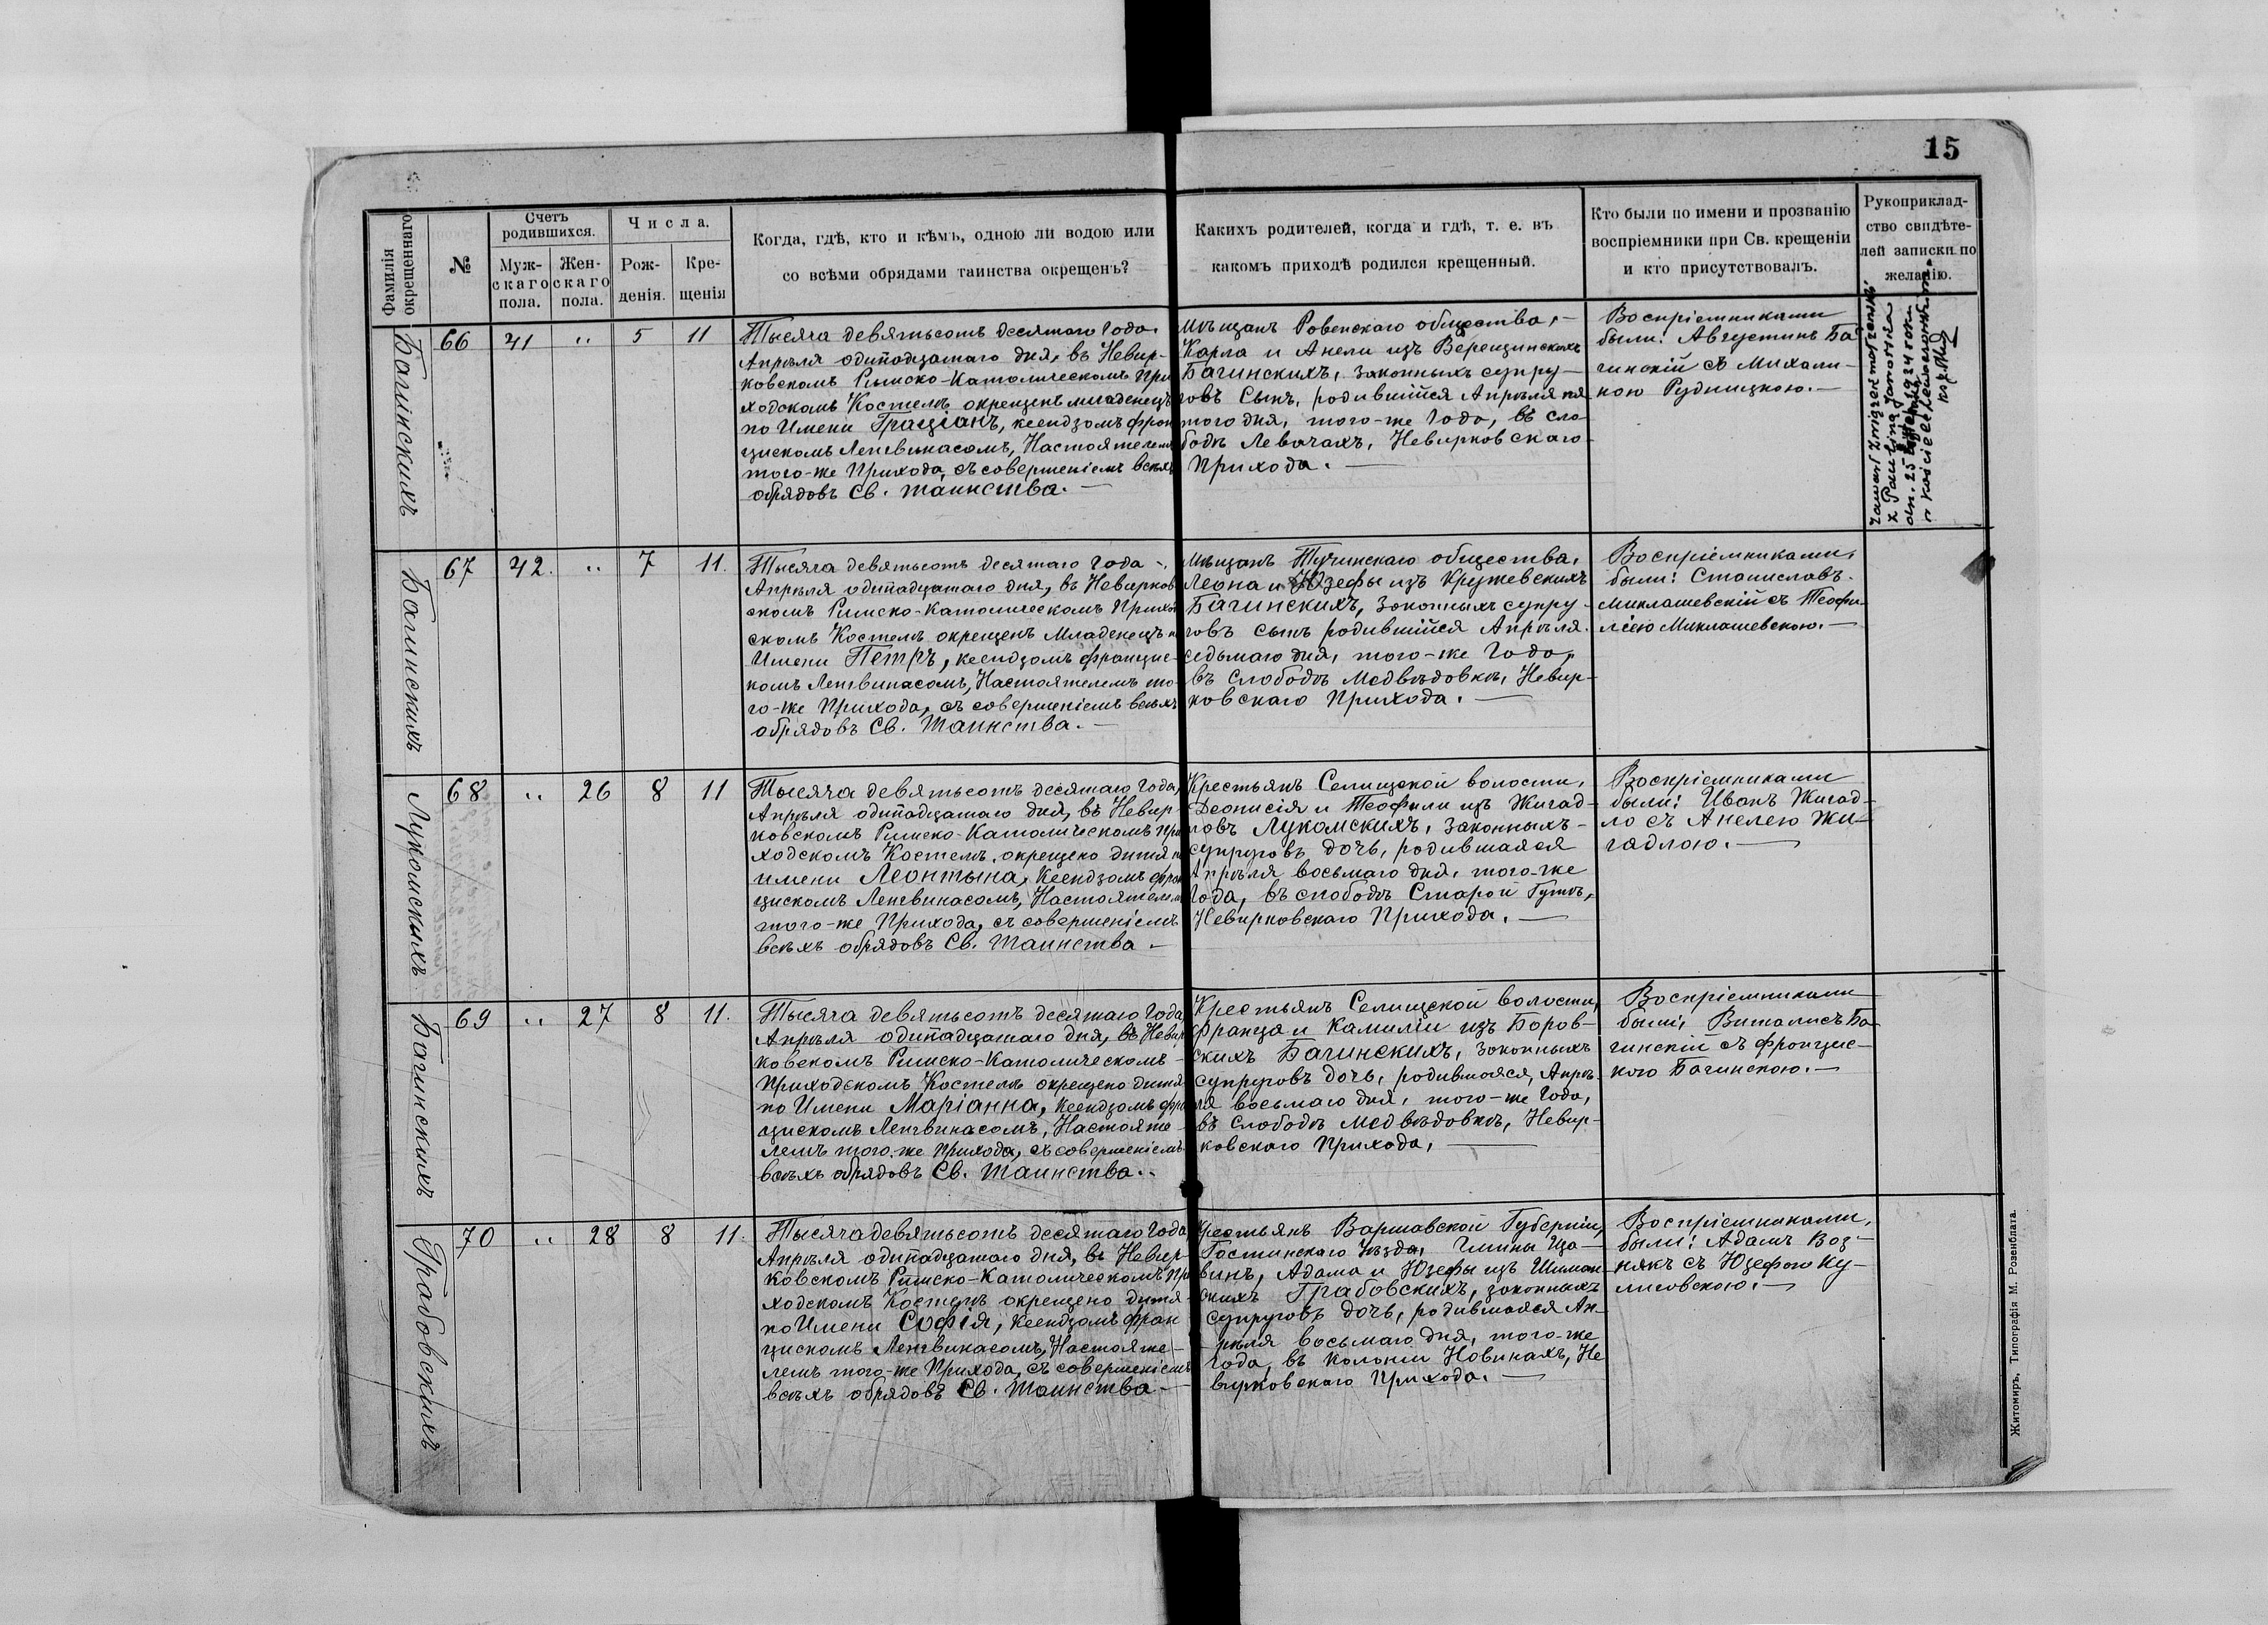 15
Фамилія
окрещеннаго
№
Счетъ
родившихся.
Муж-
скаго
пола.
Жен-
скаго
пола.
Числа.
Рож-
денія.
Кре-
щенія
Когда, гдѣ, кто и кѣмъ, одною ли водою или
со всѣми обрядами таинства окрещенъ?
Какихъ родителей, когда и гдѣ, т. е. въ
какомъ приходѣ родился крещенный.
Кто были по имени и прозванію
воспріемники при Св. крещеніи
и кто присутствовалъ.
Рукоприклад-
ство свидѣте-
лей записки по
желанію.
Багинскихъ
66
41
"
5
11
Тысяча девятьсотъ десятаго Года.
Апрѣля одинадцатаго дня, въ Невир-
ковскомъ Римско-Католическомъ При
ходскомъ Костелѣ окрещенъ младенецъ
по Имени Граціанъ, ксендзомъ Фран
цискомъ Ленгвинасомъ, Настоятелемъ
того-же Прихода, съ совершеніемъ всѣхъ
обрядовъ Св. таинства. —
Мѣщанъ Ровенскаго общества, —
Карла и Анели изъ Верещинскихъ
Багинскихъ, законныхъ супру-
говъ Сынъ, родившійся Апрѣля пя
таго дня, того-же Года, въ сло
бодѣ Левачахъ, Невирковскаго
Прихода. —
Воспріемниками
были: Августинъ Ба
гинскій съ Михали-
ною Рудницкою. —
zawarł związek małżeński
z Pauliną
dn. 25 1924 roku
w kościele
Багинскихъ
67
42.
"
7
11.
Тысяча девятьсотъ десятаго Года -,
Апрѣля одинадцатаго дня, въ Невирков
скомъ Римско-Католическомъ Приход
скомъ Костелѣ окрещенъ Младенецъ п
Имени Петръ, ксендзомъ Францис-
комъ Ленгвинасомъ, Настоятелемъ то-
го-же Прихода, съ совершеніемъ всѣхъ
обрядовъ Св. Таинства. —
Мѣщанъ Тучинскаго общества,
Леона и Юзефы изъ Кружевскихъ
Багинскихъ, законныхъ супру-
говъ сынъ родившійся Апрѣля
седьмаго дня, того-же Года,
въ слободѣ Медвѣдовкѣ, Невир-
ковскаго Прихода. —
Воспріемниками,
были: Станиславъ
Миклашевскій съ Теофи-
лією Миклашевскою. —
Лукомскихъ
68
"
26
8
11
Тысяча девятьсотъ десятаго Года,
Апрѣля одинадцатаго дня, въ Невир
ковскомъ Римско-Католическомъ При
ходскомъ Костелѣ, окрещено дитя п
имени Леонтына, Ксендзомъ Фран
цискомъ Ленгвинасомъ, Настоятелемъ
того-же Прихода, съ совершеніемъ
всѣхъ обрядовъ Св. Таинства —
Крестьянъ Селищской волости,
Деонисія и Теофили изъ Жигад-
ловъ Лукомскихъ, законныхъ-
супруговъ дочь, родившаяся
Апрѣля восьмаго дня, того-же
Года, въ слободѣ Старой Гутѣ,
Невирковскаго Прихода. —
Воспріемниками
были: Иванъ Жигад-
ло съ Анелею Жи-
гадлою. —
Багинскихъ
69
"
27
8
11.
Тысяча девятьсотъ десятаго Года
Апрѣля одинадцатаго дня, въ Невир
ковскомъ Римско-Католическомъ -
Приходскомъ Костелѣ окрещено дитя
по Имени Маріанна, ксендзомъ Фран
цискомъ Ленгвинасомъ, Настояте-
лемъ того-же Прихода, съ совершеніемъ
всѣхъ обрядовъ Св. Таинства. -
Крестьянъ Селищской волости,
Франца и Камиліи изъ Боров-
скихъ Багинскихъ, законныхъ
супруговъ дочь, родившаяся, Апрѣ-
ля восьмаго дня, того-же Года,
въ Слободѣ Медвѣдовкѣ, Невир-
ковскаго Прихода, —
Воспріемниками
были, Виталисъ Ба-
гинскій съ Францис-
кою Багинскою. —
Грабовскихъ
70
"
28
8
11.
Тысяча девятьсотъ десятаго Года
Апрѣля одинадцатаго дня, въ Невир-
ковскомъ Римско-Католическомъ При
ходскомъ Костелѣ окрещено дитя
по Имени Софія, Ксендзомъ Фран
цискомъ Ленгвинасомъ, Настояте-
лемъ того-же Прихода, съ совершеніемъ
всѣхъ обрядовъ Св. Таинства —
Крестьянъ Варшавской Губерніи,
Гостинскаго Уѣзда, Гмины Ща-
винъ, Адама и Юзефы изъ Шиман-
скихъ Грабовскихъ, законныхъ
супруговъ дочь, родившаяся Ап-
рѣля восьмаго дня, того-же
Года, въ колоніи Новинахъ, Не
вирковскаго Прихода. —
Воспріемниками,
были: Адамъ Воз-
някъ съ Юзефою Ку-
лиговскою. —
Житомиръ, Типографія М. Розенблата.